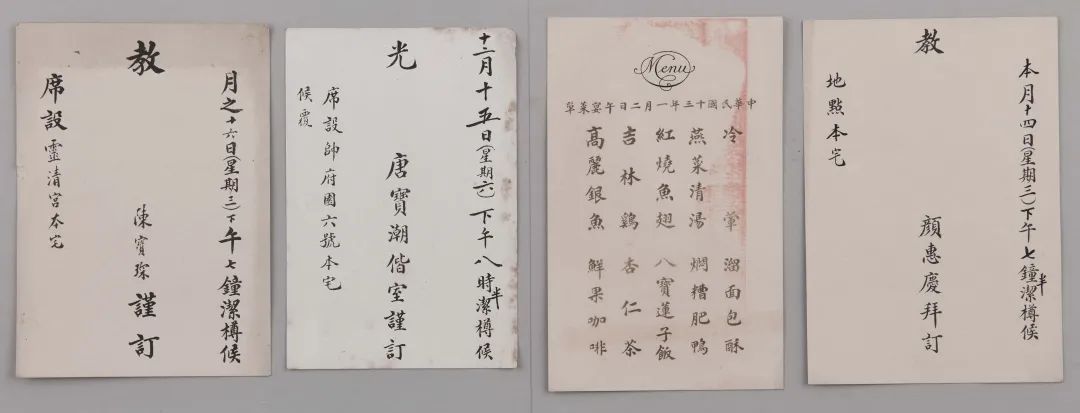 月之十六日(星期三)下午七鐘潔樽候
教
陳寶琛謹訂
席設靈清宮本宅
十二月十五日(星期六)下午八時半潔樽候
光
唐寶潮偕室謹訂
席設帥府園六號本宅
候覆
Menu
中華民國十三年一月二日午宴菜單
冷葷 溜面包酥
燕菜清湯 燜糟肥鴨
紅燒魚翅 八寶蓮子飯
吉林鷄 杏仁茶
高麗銀魚 鮮果咖啡
本月十四日(星期三)下午七鐘半潔樽候
教
顏惠慶拜訂
地點本宅